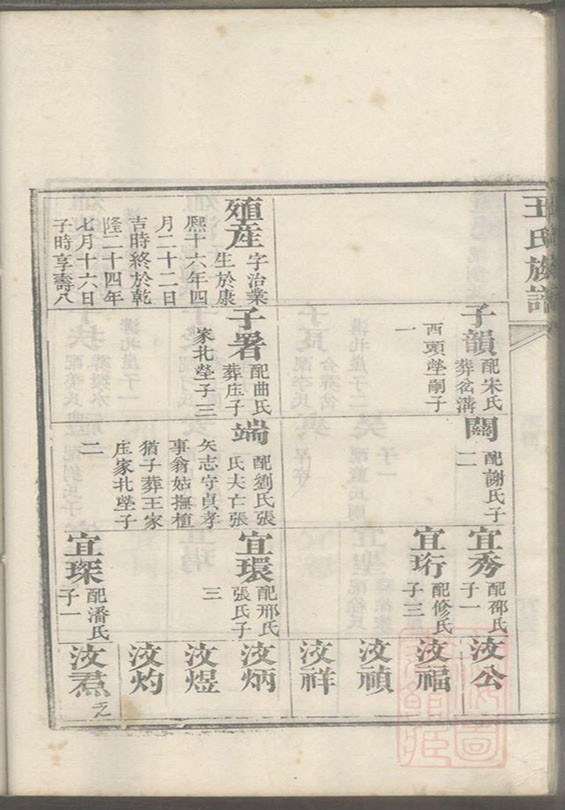 王氏族譜
子韻
配宋氏
葬岔溝
西頭塋嗣子
一
闊
配謝氏子
二
宜秀
配鄒氏
子一
汝公
宜珩
配修氏
子三
汝福
汝禎
汝祥
殖産
字治業
生於康
熙十六年四
月二十二日
吉時終於乾
隆二十四年
七月十六日
子時享壽八
子署
配曲氏
葬庄子
家北塋子三
端
配劉氏張
氏夫亡張
矢志守貞孝
事翁姑撫植
猶子葬王家
庄家北塋子
二
宜環
配邢氏
張氏子
三
汝炳
汝煜
汝灼
宜琛
配潘氏
子一
汝焄
之